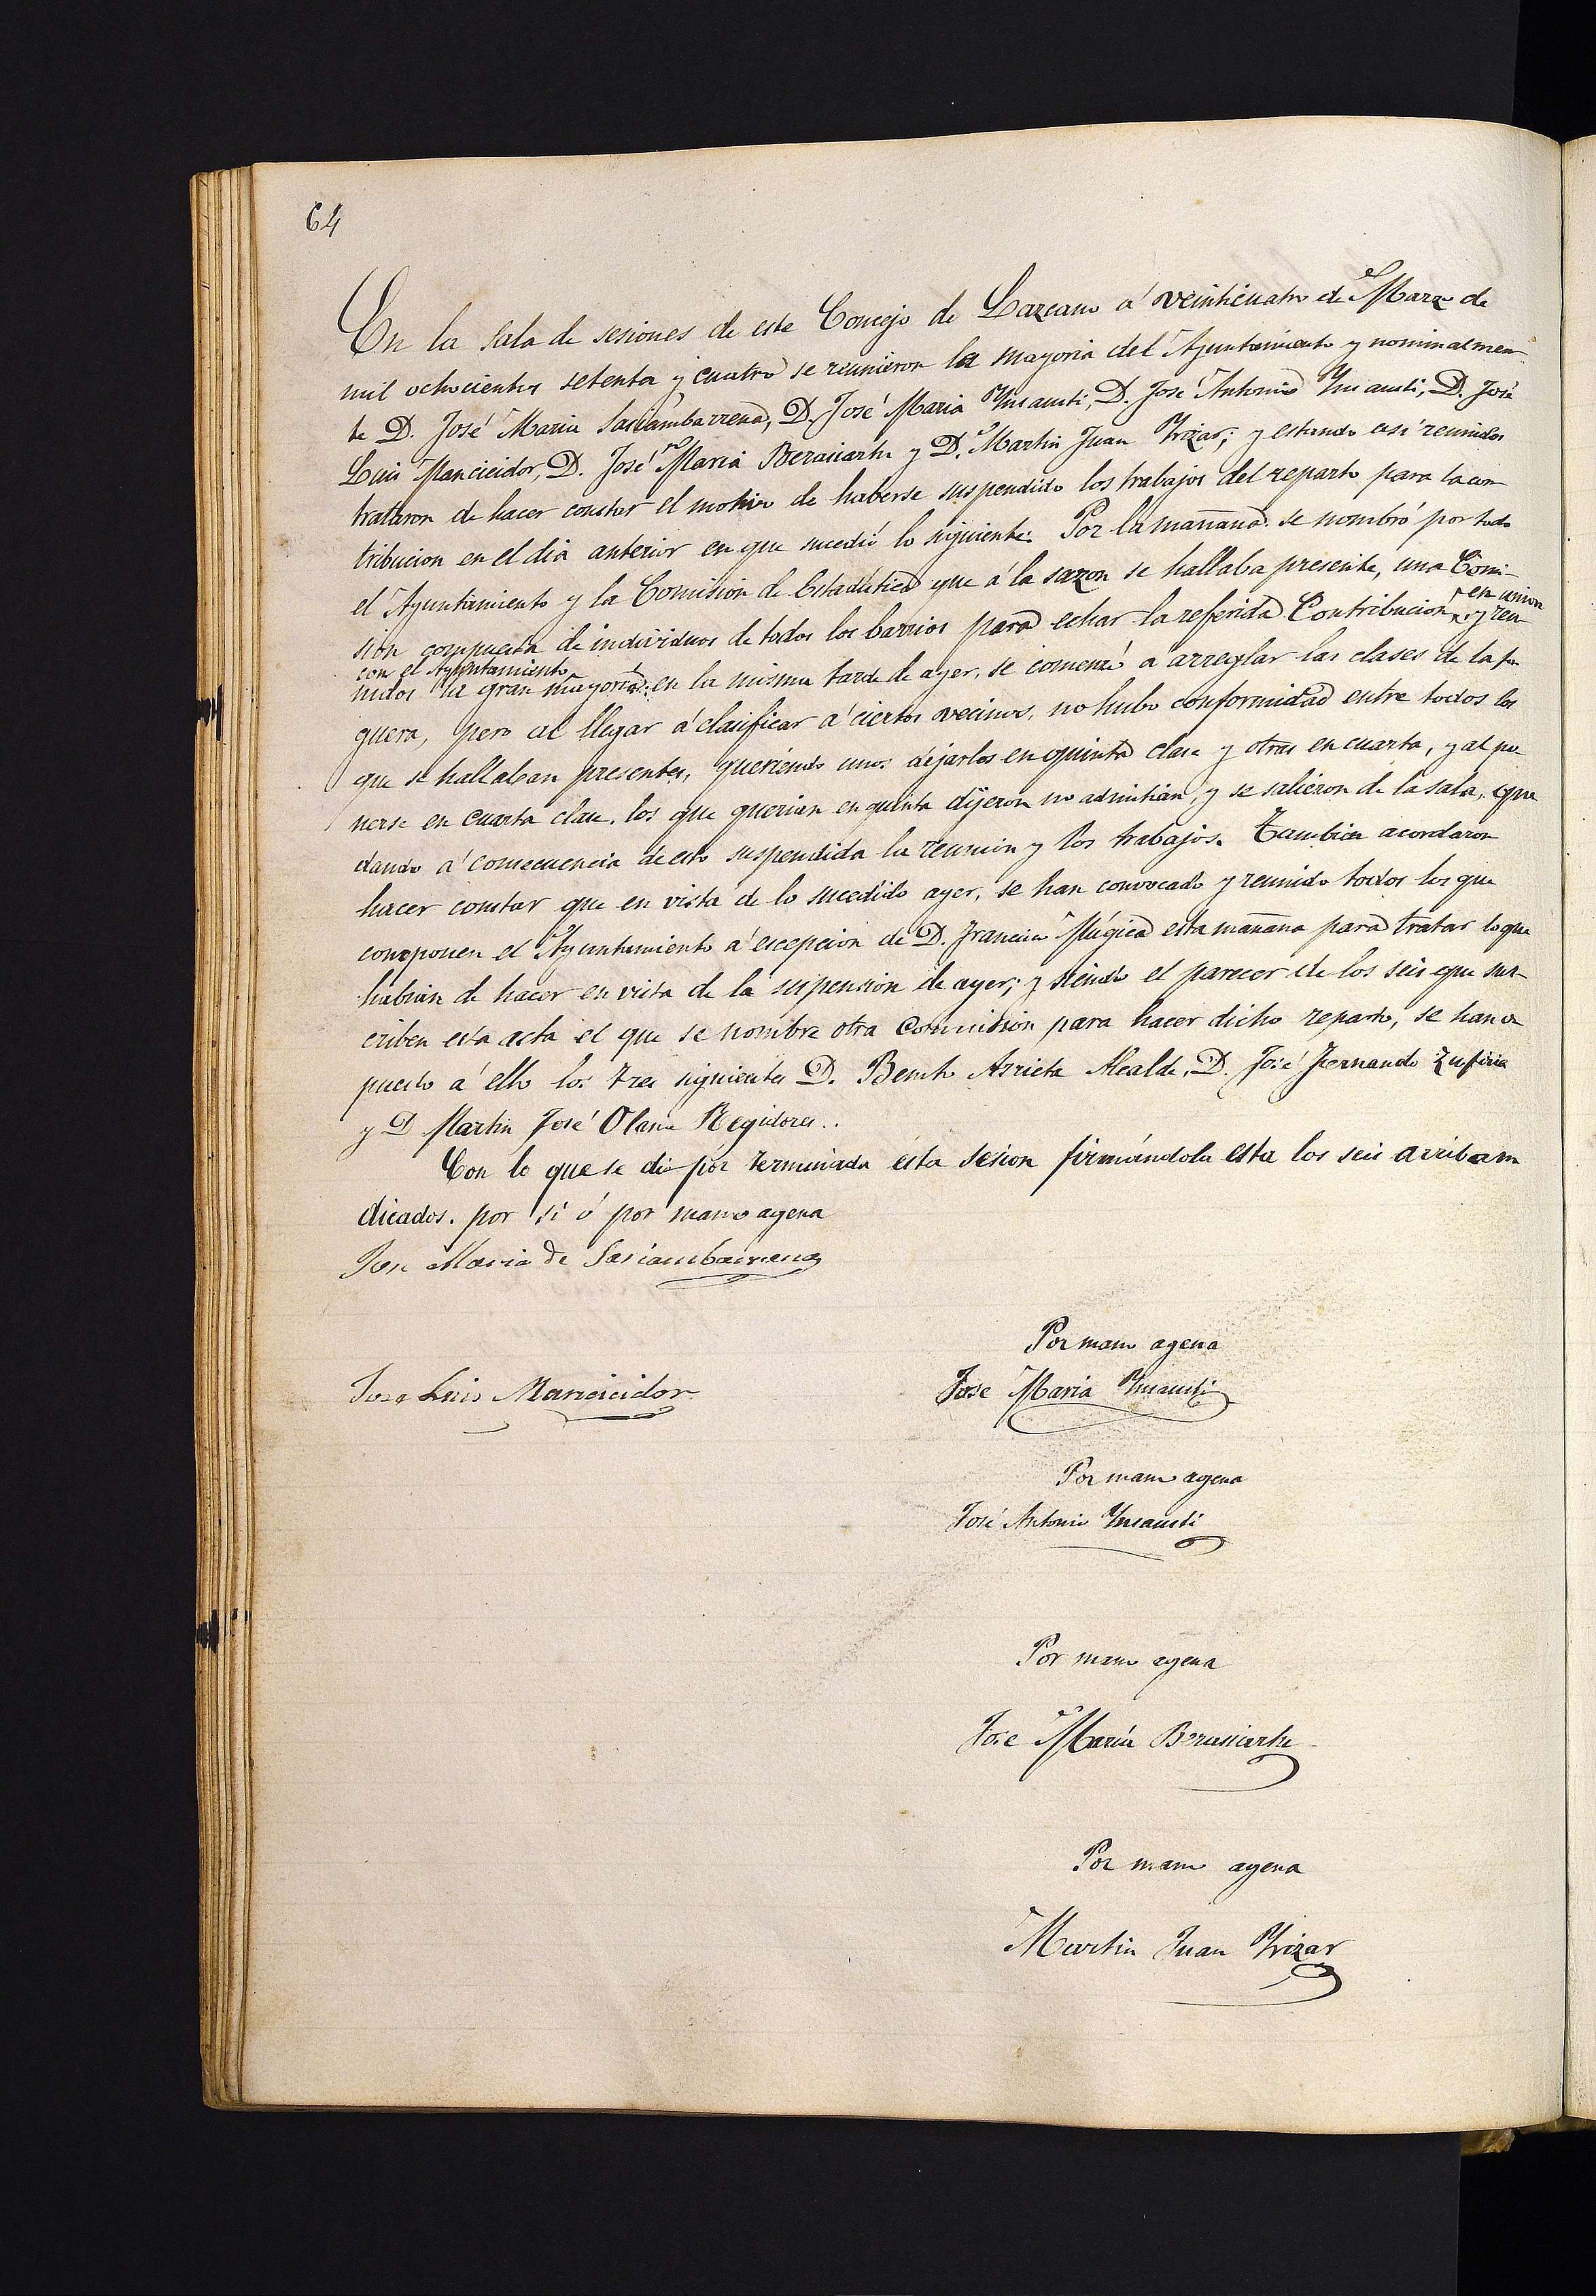 64
En la sala de sesiones de este Concejo de Lazcano á veinticuatro de Marzo de
mil ochocientos setenta y cuatro se reunieron la mayoria del Ayuntamiento y nominalmen
te D. José Maria Sasiambarrena, D. José Maria Ynsausti, D. José Antonio Ynsausti, D. José
Luis Mancicidor, D. José Maria Berasiartu y D. Martin Juan Yrizar; y estando asi reunidos
trataron de hacer constar el motivo de haberse suspendido los trabajos del reparto para la con
tribucion en el dia anterior en que sucedió lo siguiente. Por la mañana se nombró por todo
el Ayuntamiento y la Comision de Estadística que á la sazon se hallaba presente, una Comi-
sion compuesta de individuos de todos los barrios para echar la referida Contribucion en union y reu
con el Ayuntamiento
nidos la gran mayoria en la misma tarde de ayer, se comenzó a arreglar las clases de la fo
guera, pero al llegar á clasificar á ciertos vecinos, no hubo conformidad entre todos los
que se hallaban presentes, queriendo unos dejarlos en quinta clase y otros en cuarta, y al po
nerse en cuarta clase, los que querian en quinta dijeron no admitian, y se salieron de la sala, que
dando á consecuencia de esto suspendida la reunion y los trabajos. Tambien acordaron
hacer constar que en vista de lo sucedido ayer, se han convocado y reunido todos los que
componen el Ayuntamiento á escepcion de D. Francisco Múgica esta mañana para tratar lo que
habian de hacer en vista de la suspension de ayer; y siendo el parecer de los seis que sus-
criben esta acta el que se nombre otra Comision para hacer dicho reparto, se han o
puesto á ello los tres siguientes D. Benito Arrieta Alcalde, D. José Fernando Zufiria
y D Martin José Olano Regidores..
Con lo que se dio por terminada esta sesion firmándola esta los seis arriba in
dicados. por si ó por mano agena
Jose Maria de Sasiambarrena
Por mano agena
Jose Luis Mancicidor
Jose Maria Ynsausti
Por mano agena
José Antonio Ynsausti
Por mano agena
Jose Maria Berasiartu
Por mano agena
Martin Juan Yrizar